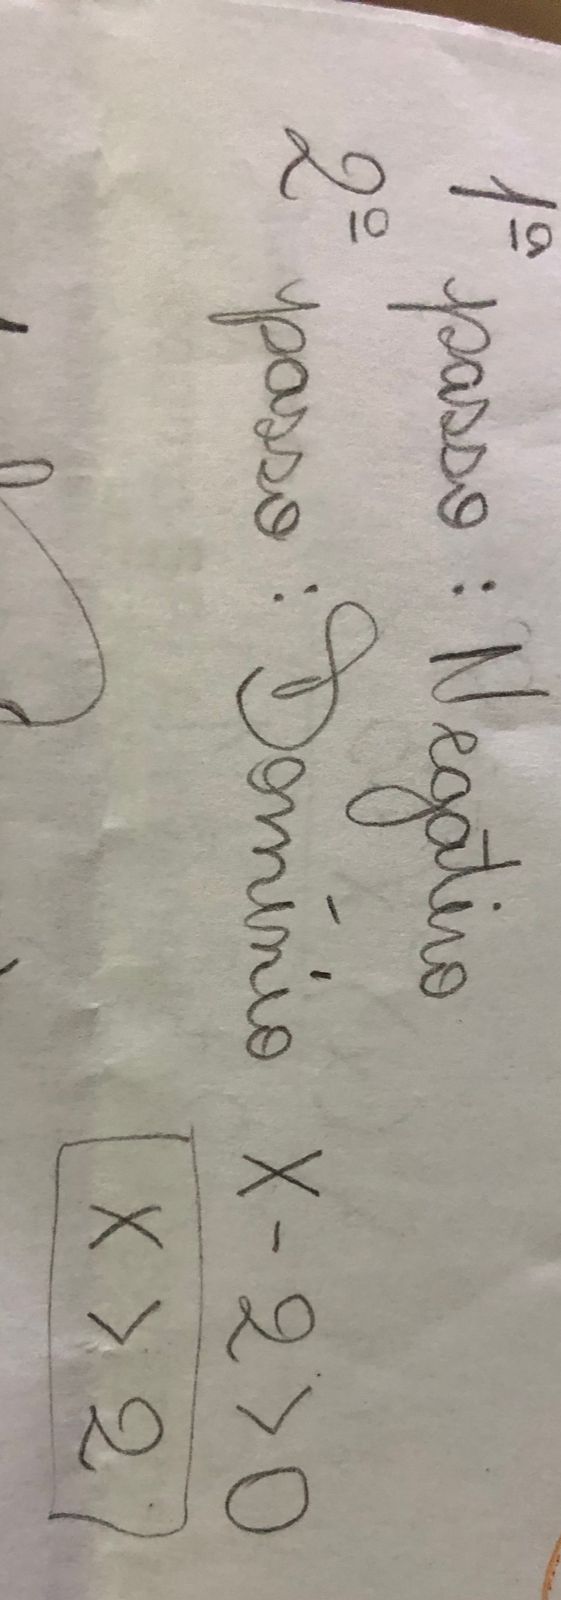 1ª passo : Negativo
2º passo : Domínio x - 2 > 0
x > 2